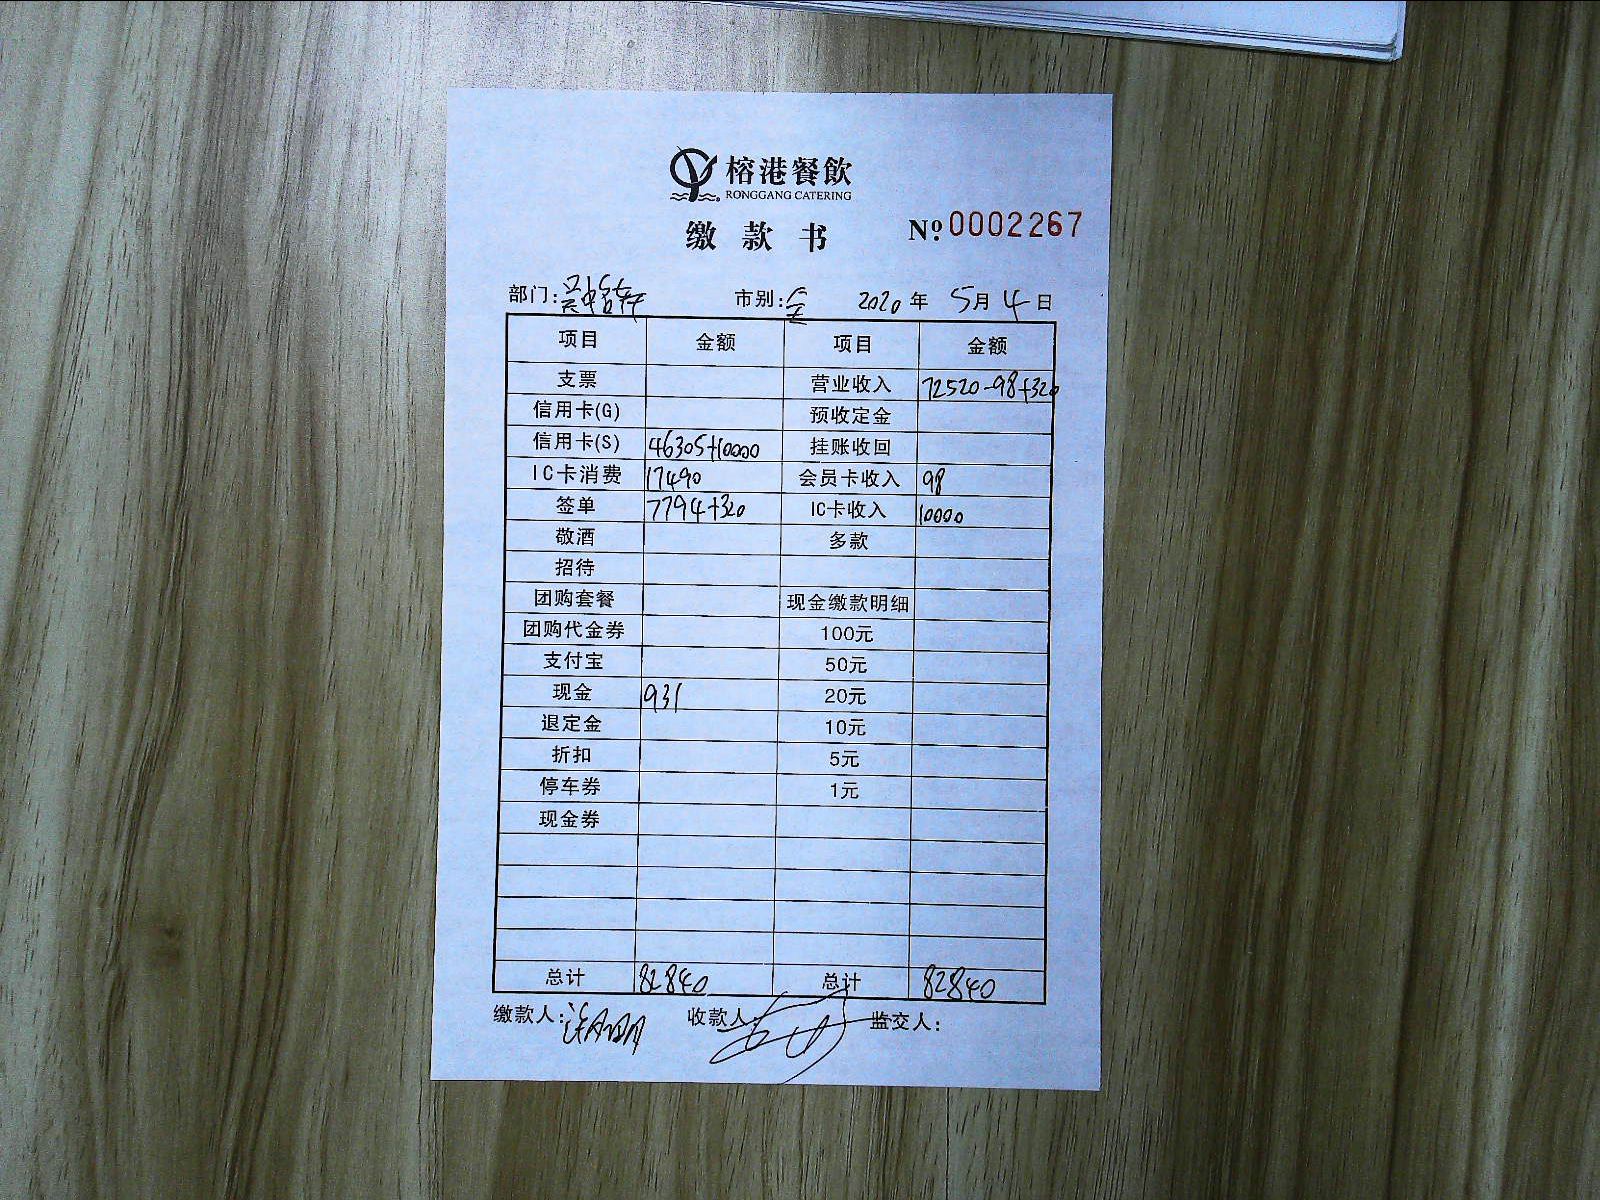 榕港餐飲
RONGGANG CATERING
缴款书 Nº 0002267
部门: 市别:全 2020年5月4日
项目 金额 项目 金额
支票 营业收入 72520-98+320
信用卡(G) 预收定金
信用卡(S) 46305+10000 挂账收回
IC卡消费 17490 会员卡收入 98
签单 7794+320 IC卡收入 10000
敬酒 多款
招待
团购套餐 现金缴款明细
团购代金券 100元
支付宝 50元
现金 931 20元
退定金 10元
折扣 5元
停车券 1元
现金券
总计 82840 总计 82840
缴款人: 收款人: 监交人: